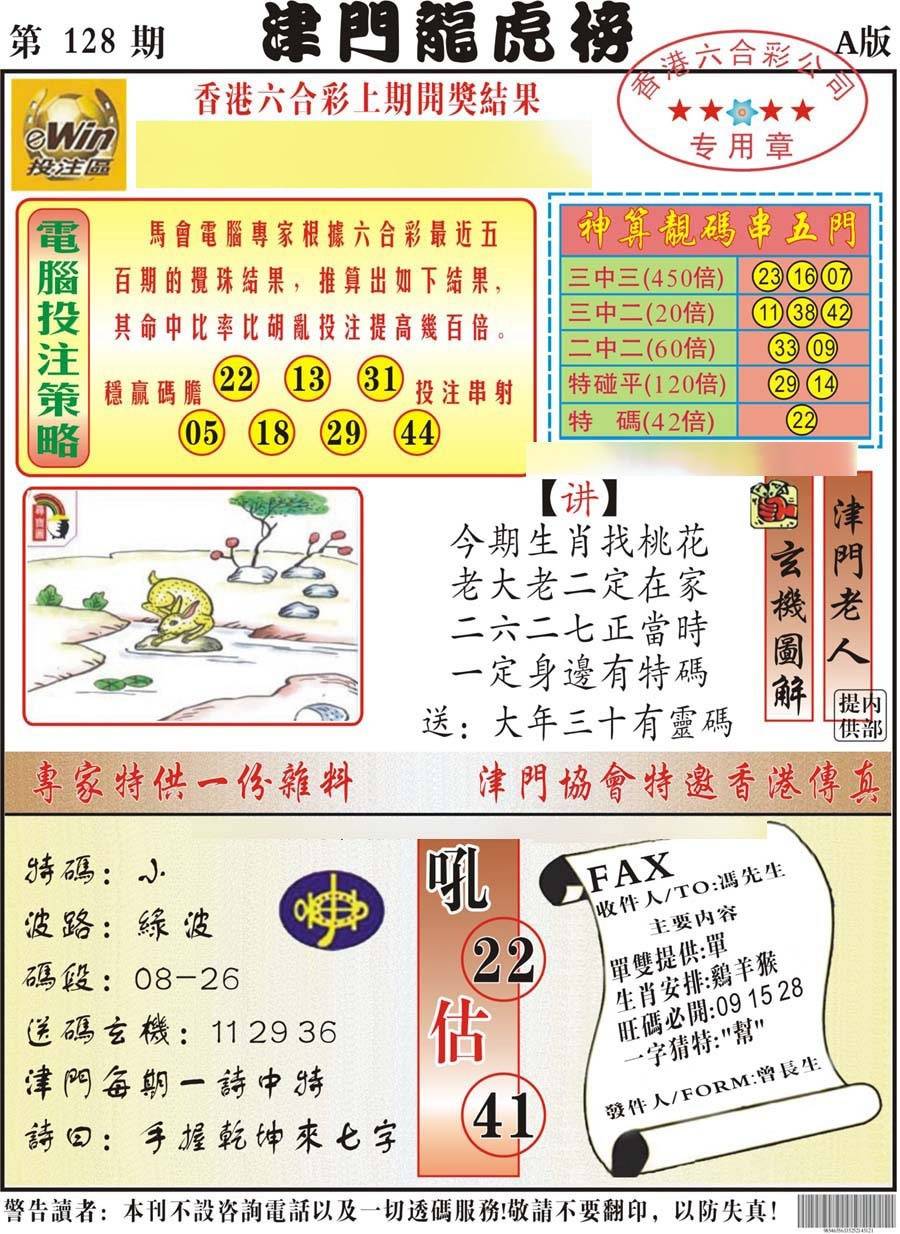 第 128 期
津門龍虎榜
A版
eWin
投注區
香港六合彩上期開獎結果
香港六合彩公司
专用章
電腦投注策略
馬會電腦專家根據六合彩最近五
百期的攪珠結果，推算出如下結果，
其命中比率比胡亂投注提高幾百倍。
穩贏碼膽 22 13 31 投注串射
05 18 29 44
神算靚碼串五門
三中三(450倍) 23 16 07
三中二(20倍) 11 38 42
二中二(60倍) 33 09
特碰平(120倍) 29 14
特 碼(42倍) 22
尋寶圖
【讲】
今期生肖找桃花
老大老二定在家
二六二七正當時
一定身邊有特碼
送：大年三十有靈碼
玄機圖解
津門老人
内部提供
專家特供一份雜料
津門協會特邀香港傳真
特碼：小
波路：綠波
碼段：08-26
送碼玄機：11 29 36
津門每期一詩中特
詩曰：手握乾坤來七字
吼
22
估
41
FAX
收件人/TO:馮先生
主要内容
單雙提供:單
生肖安排:鷄羊猴
旺碼必開:09 15 28
一字猜特:"幫"
發件人/FORM:曾長生
警告讀者：本刊不設咨詢電話以及一切透碼服務!敬請不要翻印，以防失真!